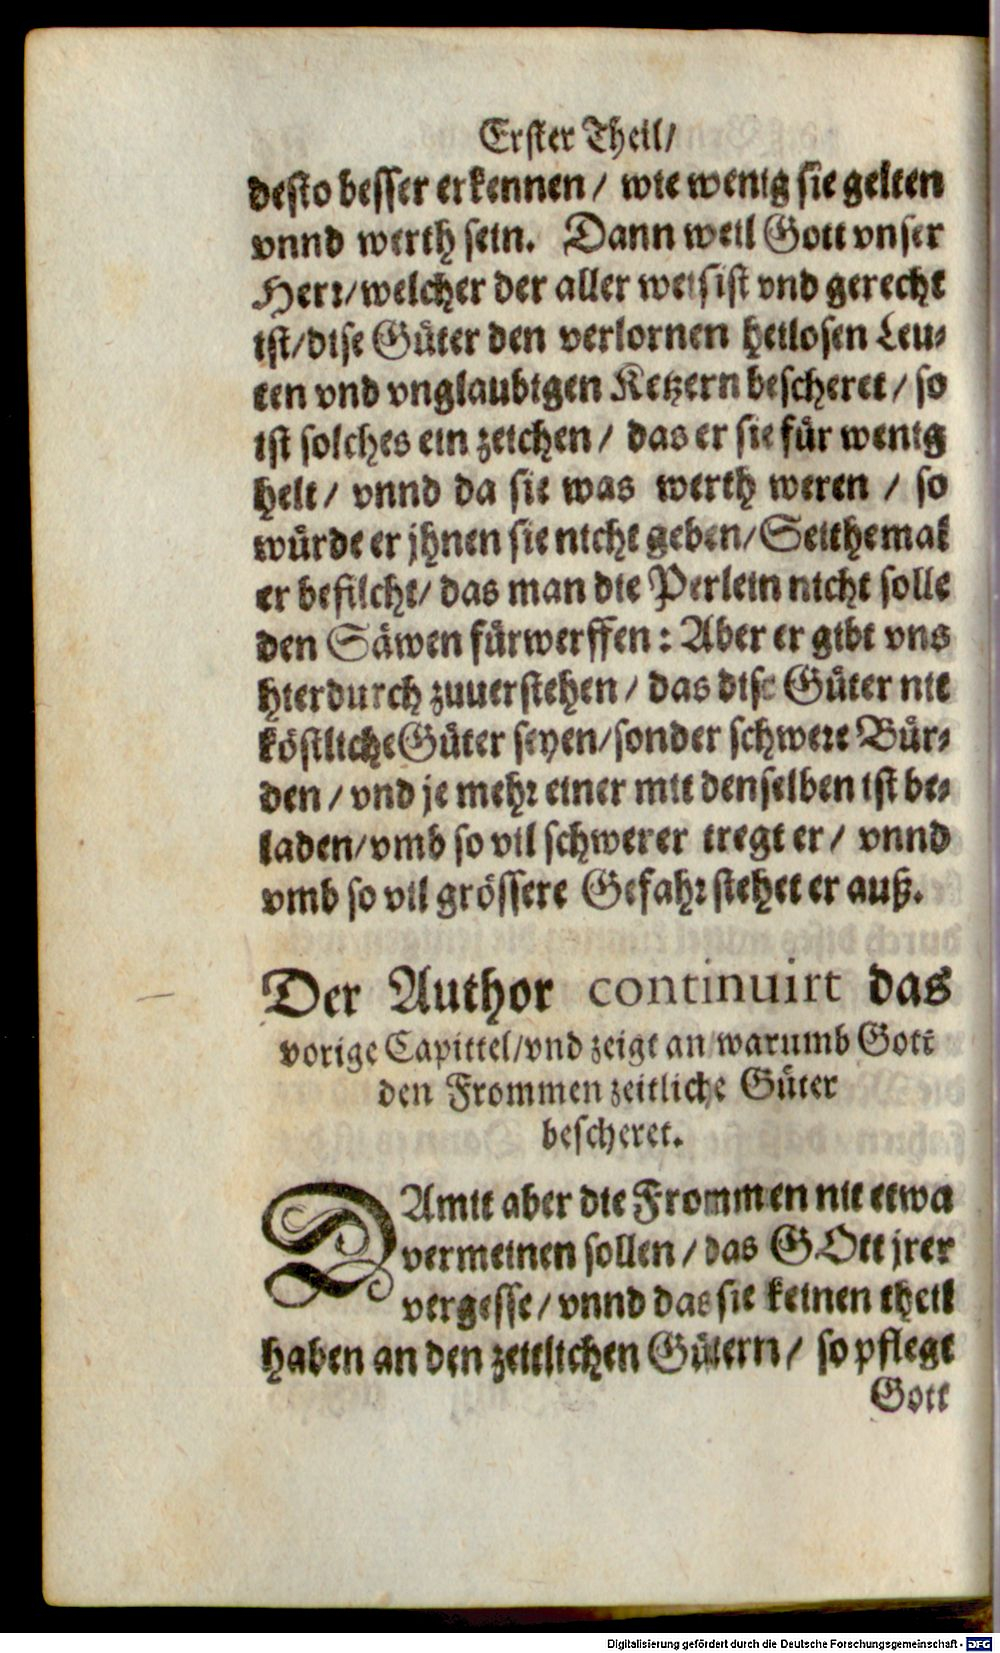 Erster Theil/
desto besser erkennen / wie wenig sie gelten
vnnd werth sein. Dann weil Gott vnser
Herr/welcher der aller weisist vnd gerecht
ist/dise Güter den verlornen heilosen Leu-
ten vnd vnglaubigen Ketzern bescheret / so
ist solches ein zeichen / das er sie für wenig
helt / vnnd da sie was werth weren / so
würde er jhnen sie nicht geben/Seithemal
er befilcht/ das man die Perlein nicht solle
den Säwen fürwerffen : Aber er gibt vns
hierdurch zuuerstehen / das dise Güter nit
köstliche Güter seyen/sonder schwere Bür-
den / vnd je mehr einer mit denselben ist be-
laden/vmb so vil schwerer tregt er / vnnd
vmb so vil grössere Gefahr stehet er auß.
Der Author continuirt das
vorige Capittel/vnd zeigt an warumb Gott
den Frommen zeitliche Güter
bescheret.
DAmit aber die Frommen nit etwa
vermeinen sollen / das GOtt jrer
vergesse / vnnd das sie keinen theil
haben an den zeitlichen Gütern / so pflegt
Gott
Digitalisierung gefördert durch die Deutsche Forschungsgemeinschaft - DFG